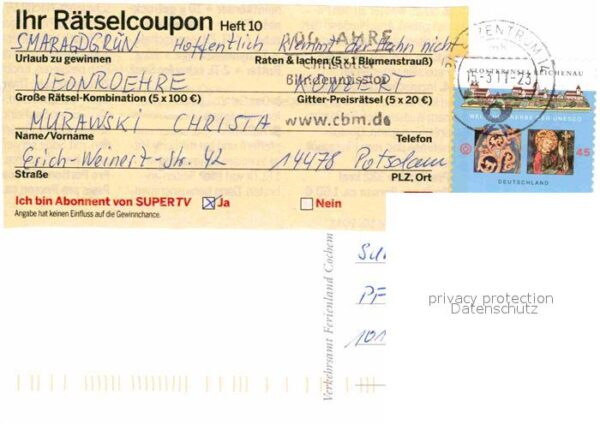 Ihr Rätselcoupon Heft 10
SMARAGDGRÜN Hoffentlich klemmt der Hahn nicht
Urlaub zu gewinnen Raten & lachen (5 x 1 Blumenstrauß)
NEONROEHRE KONZERT
Große Rätsel-Kombination (5 x 100 €) Gitter-Preisrätsel (5 x 20 €)
MURAWSKI CHRISTA
Name/Vorname Telefon
Erich-Weinert-Str. 42 14478 Potsdam
Straße PLZ, Ort
Ich bin Abonnent von SUPERTV Ja Nein
Angabe hat keinen Einfluss auf die Gewinnchance.
JAHRE
Christoffel
Blindenmission
www.cbm.de
BRIEFZENTRUM
KLOSTERINSEL REICHENAU
WELTKULTURERBE DER UNESCO
45
DEUTSCHLAND
Verkehrsamt Ferienland Cochem
Su
PF
101
privacy protection
Datenschutz